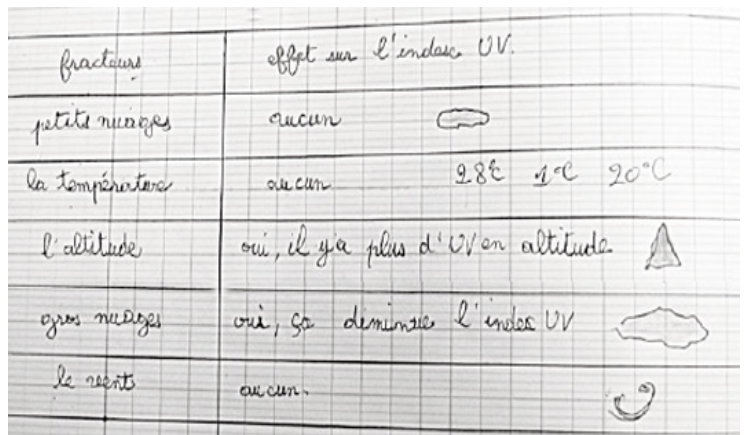 fracteurs effet sur l'indesc UV.
petits nuages aucun
la température aucun 28°C 1°C 20°C
l'altitude oui, il y'a plus d'UV en altitude
gros nuages oui, ça diminue l'index UV
le vent aucun.